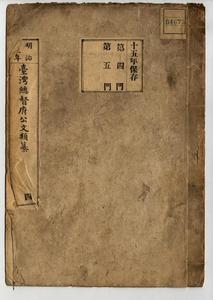 十五年保存
第四門
第五門
明治
年
臺灣總督府公文類纂
四